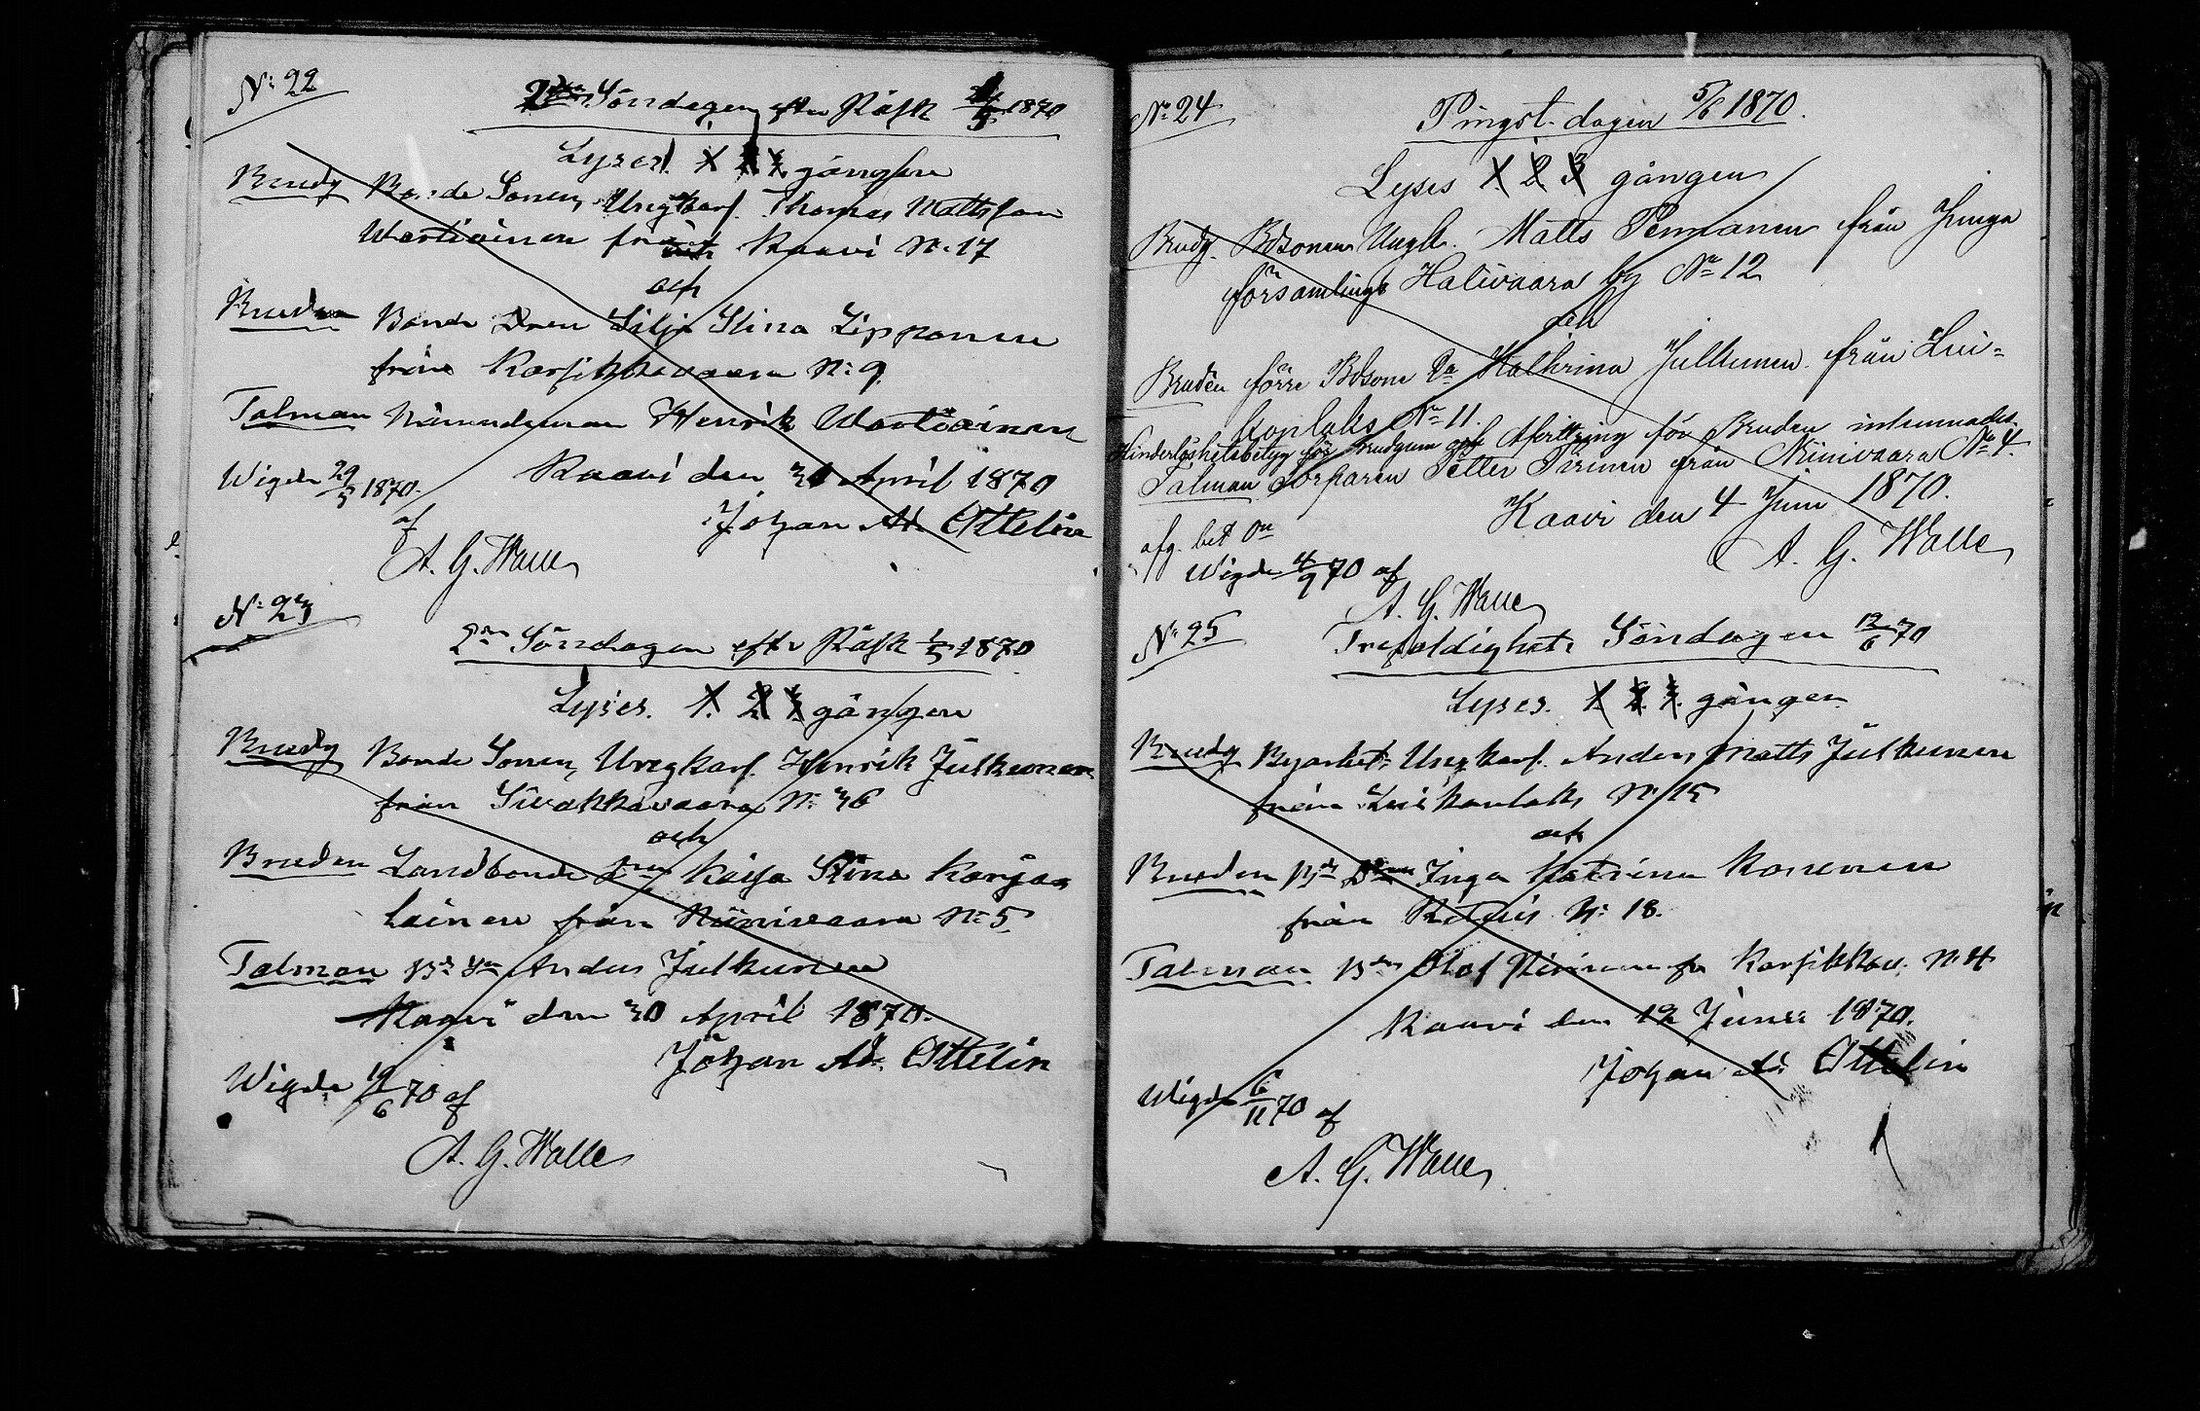 N: 22
2dra Söndagen efter Påsk 1/5 1870
Lyses 1. 2. 3. gången
Brudg Bonde Sonen, Ungkarl. Thomas Mattsson
Wartiainen från Kaavi N: 17
och
Bruden Bonde Dren Silja Stina Lipponen
från Karsikkovaara N: 9.
Talman Nämndeman Henrik Wartiainen
Wigde 29/5 1870.
Kaavi den 30 April 1870
af
Johan Ad. Ottelin
A. G. Walle
N: 23
2dra Söndagen efter Påsk 1/5 1870
Lyses. 1. 2. 3. gången
Brudg Bonde Sonen, Ungkarl. Henrik Julkunen
från Siwakkavaara N: 36
och
Bruden Landbonde Dren Kaisa Stina Karja
lainen från Niinivaara N: 5
Talman Bd Sn Anders Julkunen
Kaavi den 30 April 1870.
Johan Ad. Ottelin
Wigde 19/6 70 af
A. G. Walle
N: 24
Pingst-dagen 5/6 1870.
Lyses 1. 2. 3. gången
Brudg. Bdsonen Ungk. Matts Pennanen från Juuga
församlings Halivaara by No 12
och
Bruden förre Bdsone Da Kathrina Julkunen från Lui=
konlaks No 11.
Hinderlöshetsbetyg för brudgum och Afvittring för Bruden inlemnades.
Talman Torparen Petter Pirinen från Niinivaara No 4.
Kaavi den 4 Juni 1870.
afg. bet
A. G. Walle
Wigde 4/9 70 af
A. G. Walle
N: 25
Trefaldighets Söndagen 12/6 70
Lyses. 1. 2. 3. gången
Brudg Byarbet. Ungkarl. Anders Matts Julkunen
från Luikonlaks N: 15
och
Bruden Bd Dren Inga Katrina Kononen
från Retuis N: 18.
Talman Bden Olof Pirinen fr Karsikkov. N: 4
Kaavi den 12 Junii 1870.
Johan Ad. Ottelin
Wigde 6/11 70 af
A. G. Walle